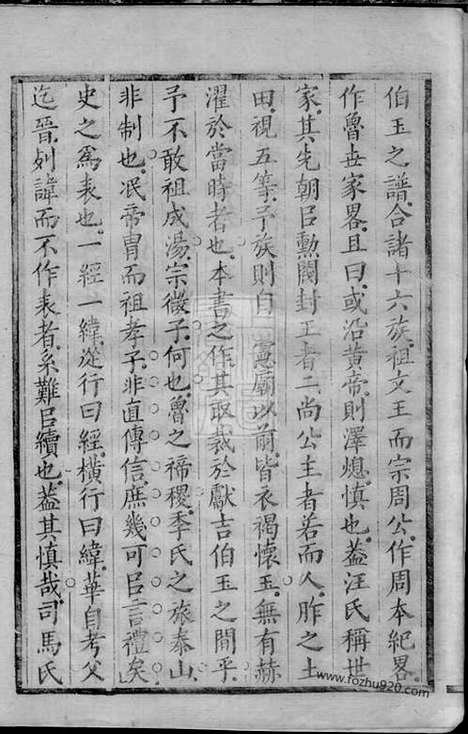 伯玉之譜合諸十六族祖文王而宗周公作周本紀畧
作魯世家畧且曰或沿黃帝則澤熄慎也葢汪氏稱世
家其先朝㠯勲閥封王者二尚公主者若而人胙之土
田視五等予族則自 憲廟以前皆衣褐懷玉無有赫
濯於當時者也本書之作其取裁於獻吉伯玉之間乎
予不敢祖成湯宗微子何也魯之禘稷季氏之旅泰山
非制也冺帝胄而祖孝子非直傳信庶幾可㠯言禮矣
史之爲表也一經一緯從行曰經橫行曰緯華自考父
迄晉列諱而不作表者系難㠯續也葢其慎哉司馬氏
www.fozhu920.com